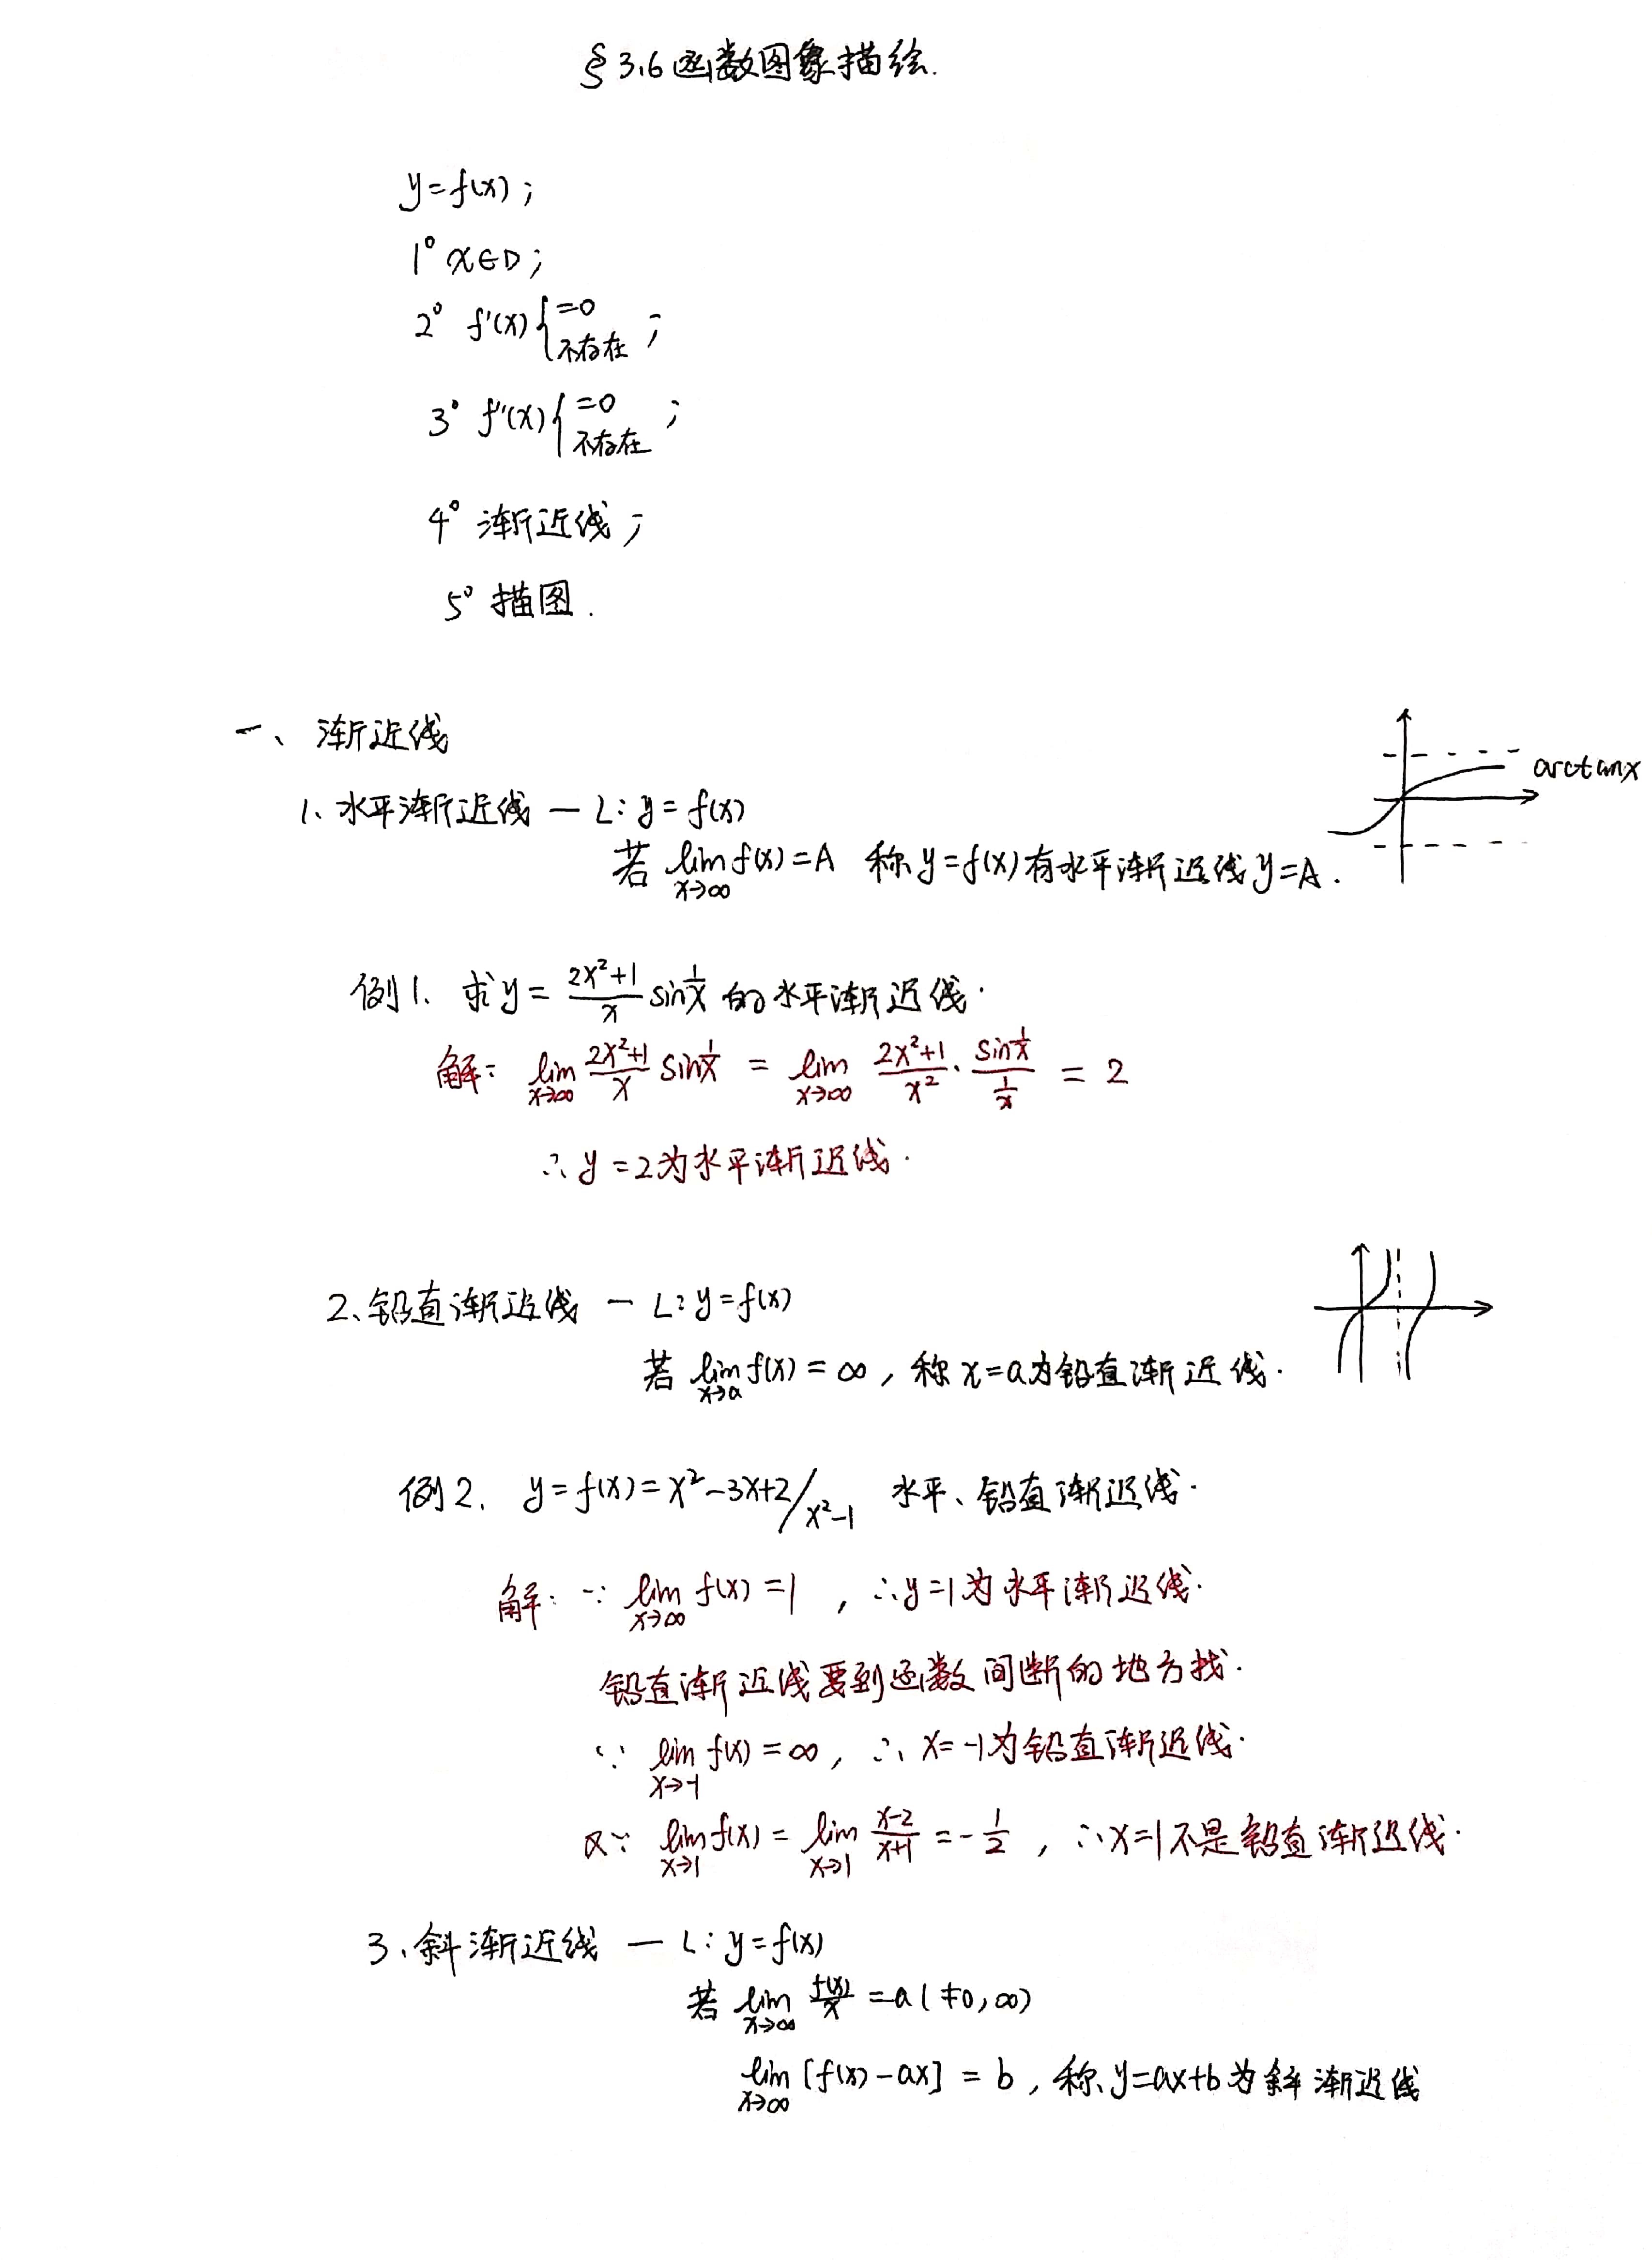 §3.6 函数图象描绘.
y=f(x);
1° x∈D;
2° f'(x){=0 不存在;
3° f''(x){=0 不存在;
4° 渐近线;
5° 描图.
一、渐近线
arctanx
1、水平渐近线 — L: y=f(x)
若 lim_{x→∞} f(x)=A 称y=f(x)有水平渐近线y=A.
例1. 求y= (2x²+1)/x sin 1/x 的水平渐近线.
解: lim_{x→∞} (2x²+1)/x sin 1/x = lim_{x→∞} (2x²+1)/x² · (sin 1/x)/(1/x) = 2
∴y=2为水平渐近线.
2、铅直渐近线 — L: y=f(x)
若 lim_{x→a} f(x)=∞, 称x=a为铅直渐近线.
例2. y=f(x)=x²-3x+2/x²-1 水平、铅直渐近线.
解: ∵ lim_{x→∞} f(x)=1, ∴y=1为水平渐近线.
铅直渐近线要到函数间断的地方找.
∵ lim_{x→-1} f(x)=∞, ∴ x=-1为铅直渐近线.
又∵ lim_{x→1} f(x)= lim_{x→1} (x-2)/(x+1) = -1/2, ∴x=1不是铅直渐近线.
3、斜渐近线 — L: y=f(x)
若 lim_{x→∞} f(x)/x =a(≠0,∞)
lim_{x→∞} [f(x)-ax] = b, 称y=ax+b为斜渐近线